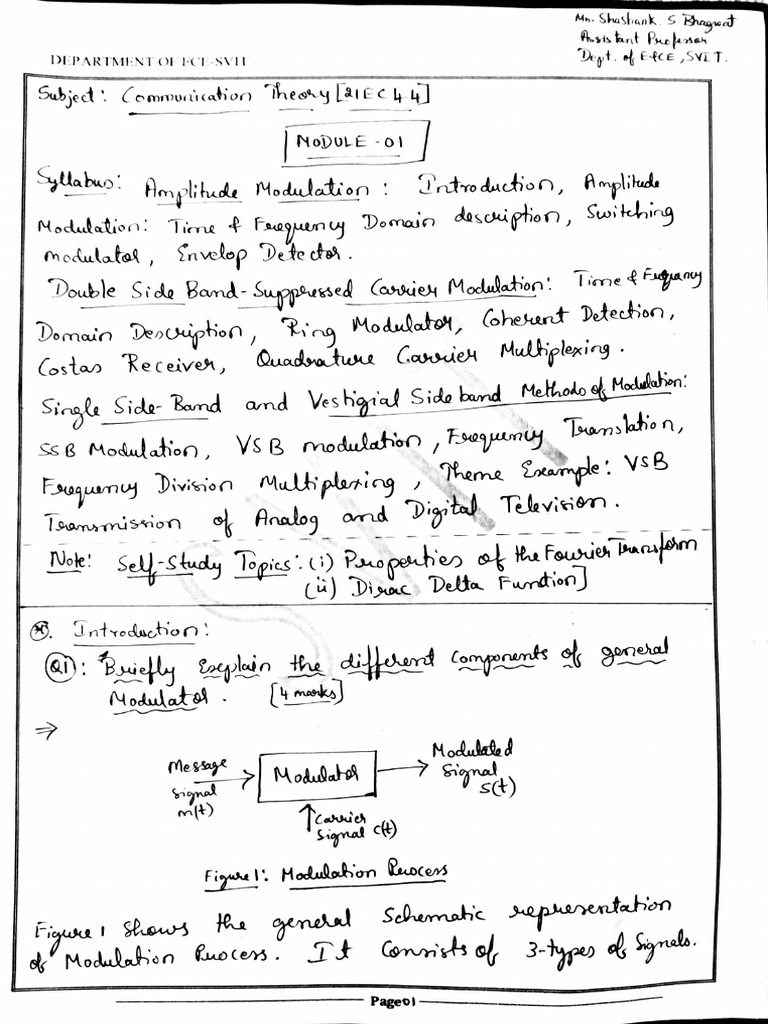 Mr. Shashank. S Bhagwat
Assistant Professor
Dept. of E&CE, SVIT.
DEPARTMENT OF ECE-SVIT
Subject: Communication Theory [21EC44]
MODULE-01
Syllabus: Amplitude Modulation: Introduction, Amplitude
Modulation: Time & Frequency Domain description, Switching
modulator, Envelop Detector.
Double Side Band-Suppressed Carrier Modulation: Time & Frequency
Domain Description, Ring Modulator, Coherent Detection,
Costas Receiver, Quadrature Carrier Multiplexing.
Single Side-Band and Vestigial Sideband Methods of Modulation:
SSB Modulation, VSB modulation, Frequency Translation,
Frequency Division Multiplexing, Theme Example: VSB
Transmission of Analog and Digital Television.
Note: Self-Study Topics: (i) Properties of the Fourier Transform
(ii) Dirac Delta Function]
*. Introduction:
Q1: Briefly Explain the different components of general
Modulator. [4 marks]
⇒
Message
signal
m(t)
Modulator
Modulated
Signal
s(t)
Carrier
signal c(t)
Figure 1: Modulation Process
Figure 1 shows the general Schematic representation
of Modulation Process. It consists of 3-types of Signals.
Page01